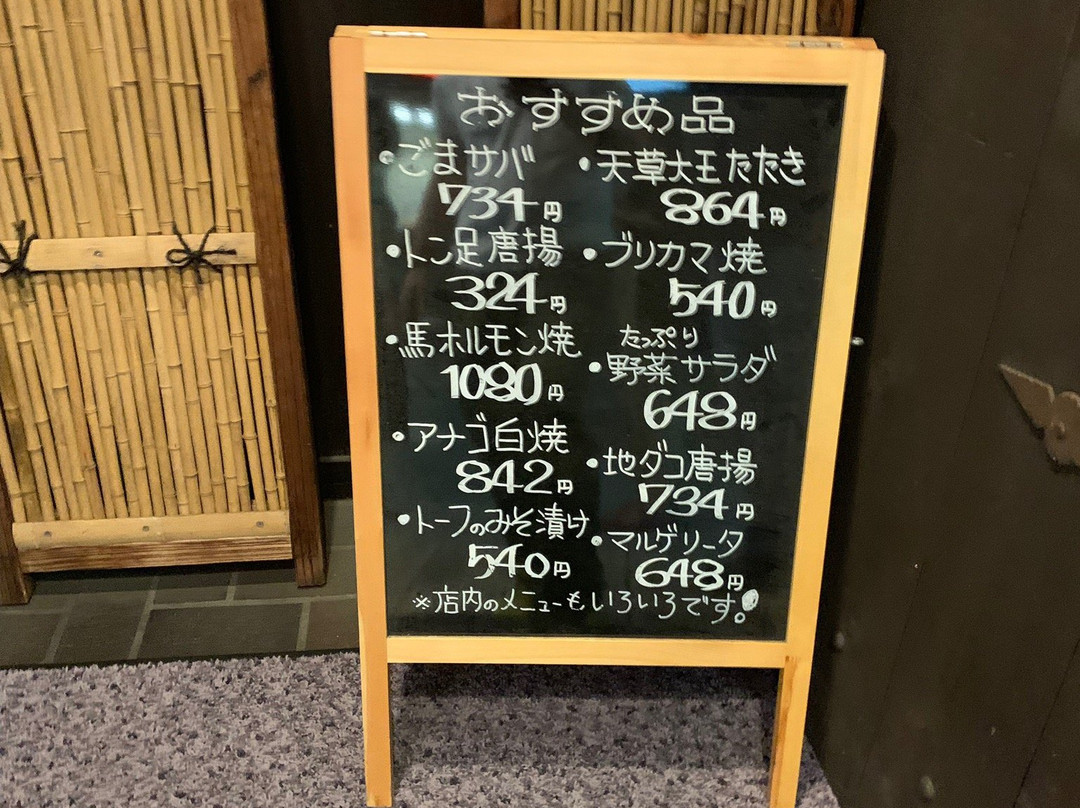 おすすめ品
・ごまサバ
734円
・トン足唐揚
324円
・馬ホルモン焼
1080円
・アナゴ白焼
842円
・トーフのみそ漬け
540円
・天草大王たたき
864円
・ブリカマ焼
540円
たっぷり
・野菜サラダ
648円
・地ダコ唐揚
734円
・マルゲリータ
648円
※店内のメニューもいろいろです。